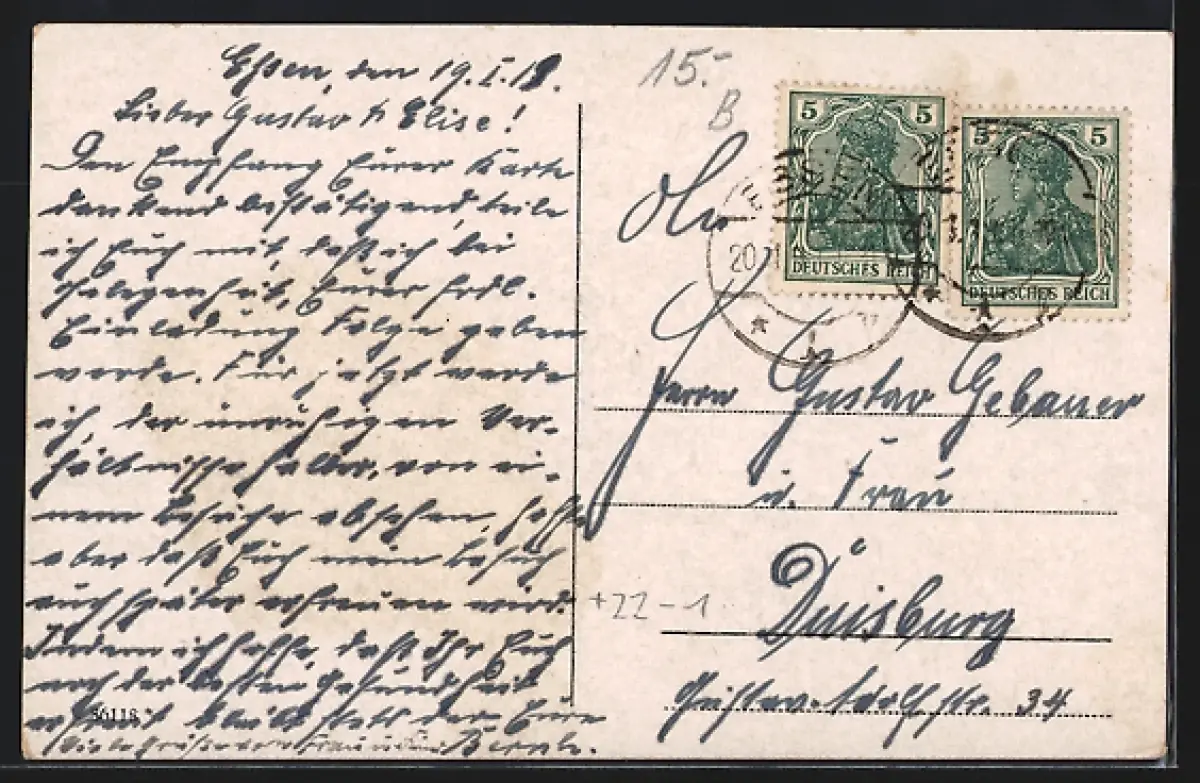 Essen, den 19.I.19.
Lieber Gustav & Elise!
Den Empfang Eurer Karte
dankend bestätigend, teile
ich Euch mit, daß ich bei
Gelegenheit, Eurer frdl.
Einladung Folge geben
werde. Für jetzt werde
ich, der unruhigen Ver-
hältnisse halber, von ei-
nem Besuche absehen, hoffe
aber daß Euch mein Besuch
auch später erfreuen wird.
Indem ich hoffe, daß Ihr Euch
noch der besten Gesundheit
erfreut bleibt stets der Eure
Viele Grüße von Frau u.
36118
15.-
B
An
Herrn Gustav Gebauer
u. Frau
Duisburg
Gustav-Adolfstr. 34
+22-1
5 5
DEUTSCHES REICH
5 5
DEUTSCHES REICH
20. 1